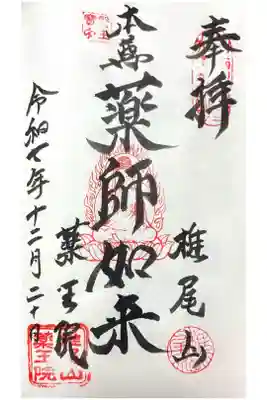 奉拝
椎尾山
本尊
薬師如来
薬王院
令和七年十二月二十日
薬王院